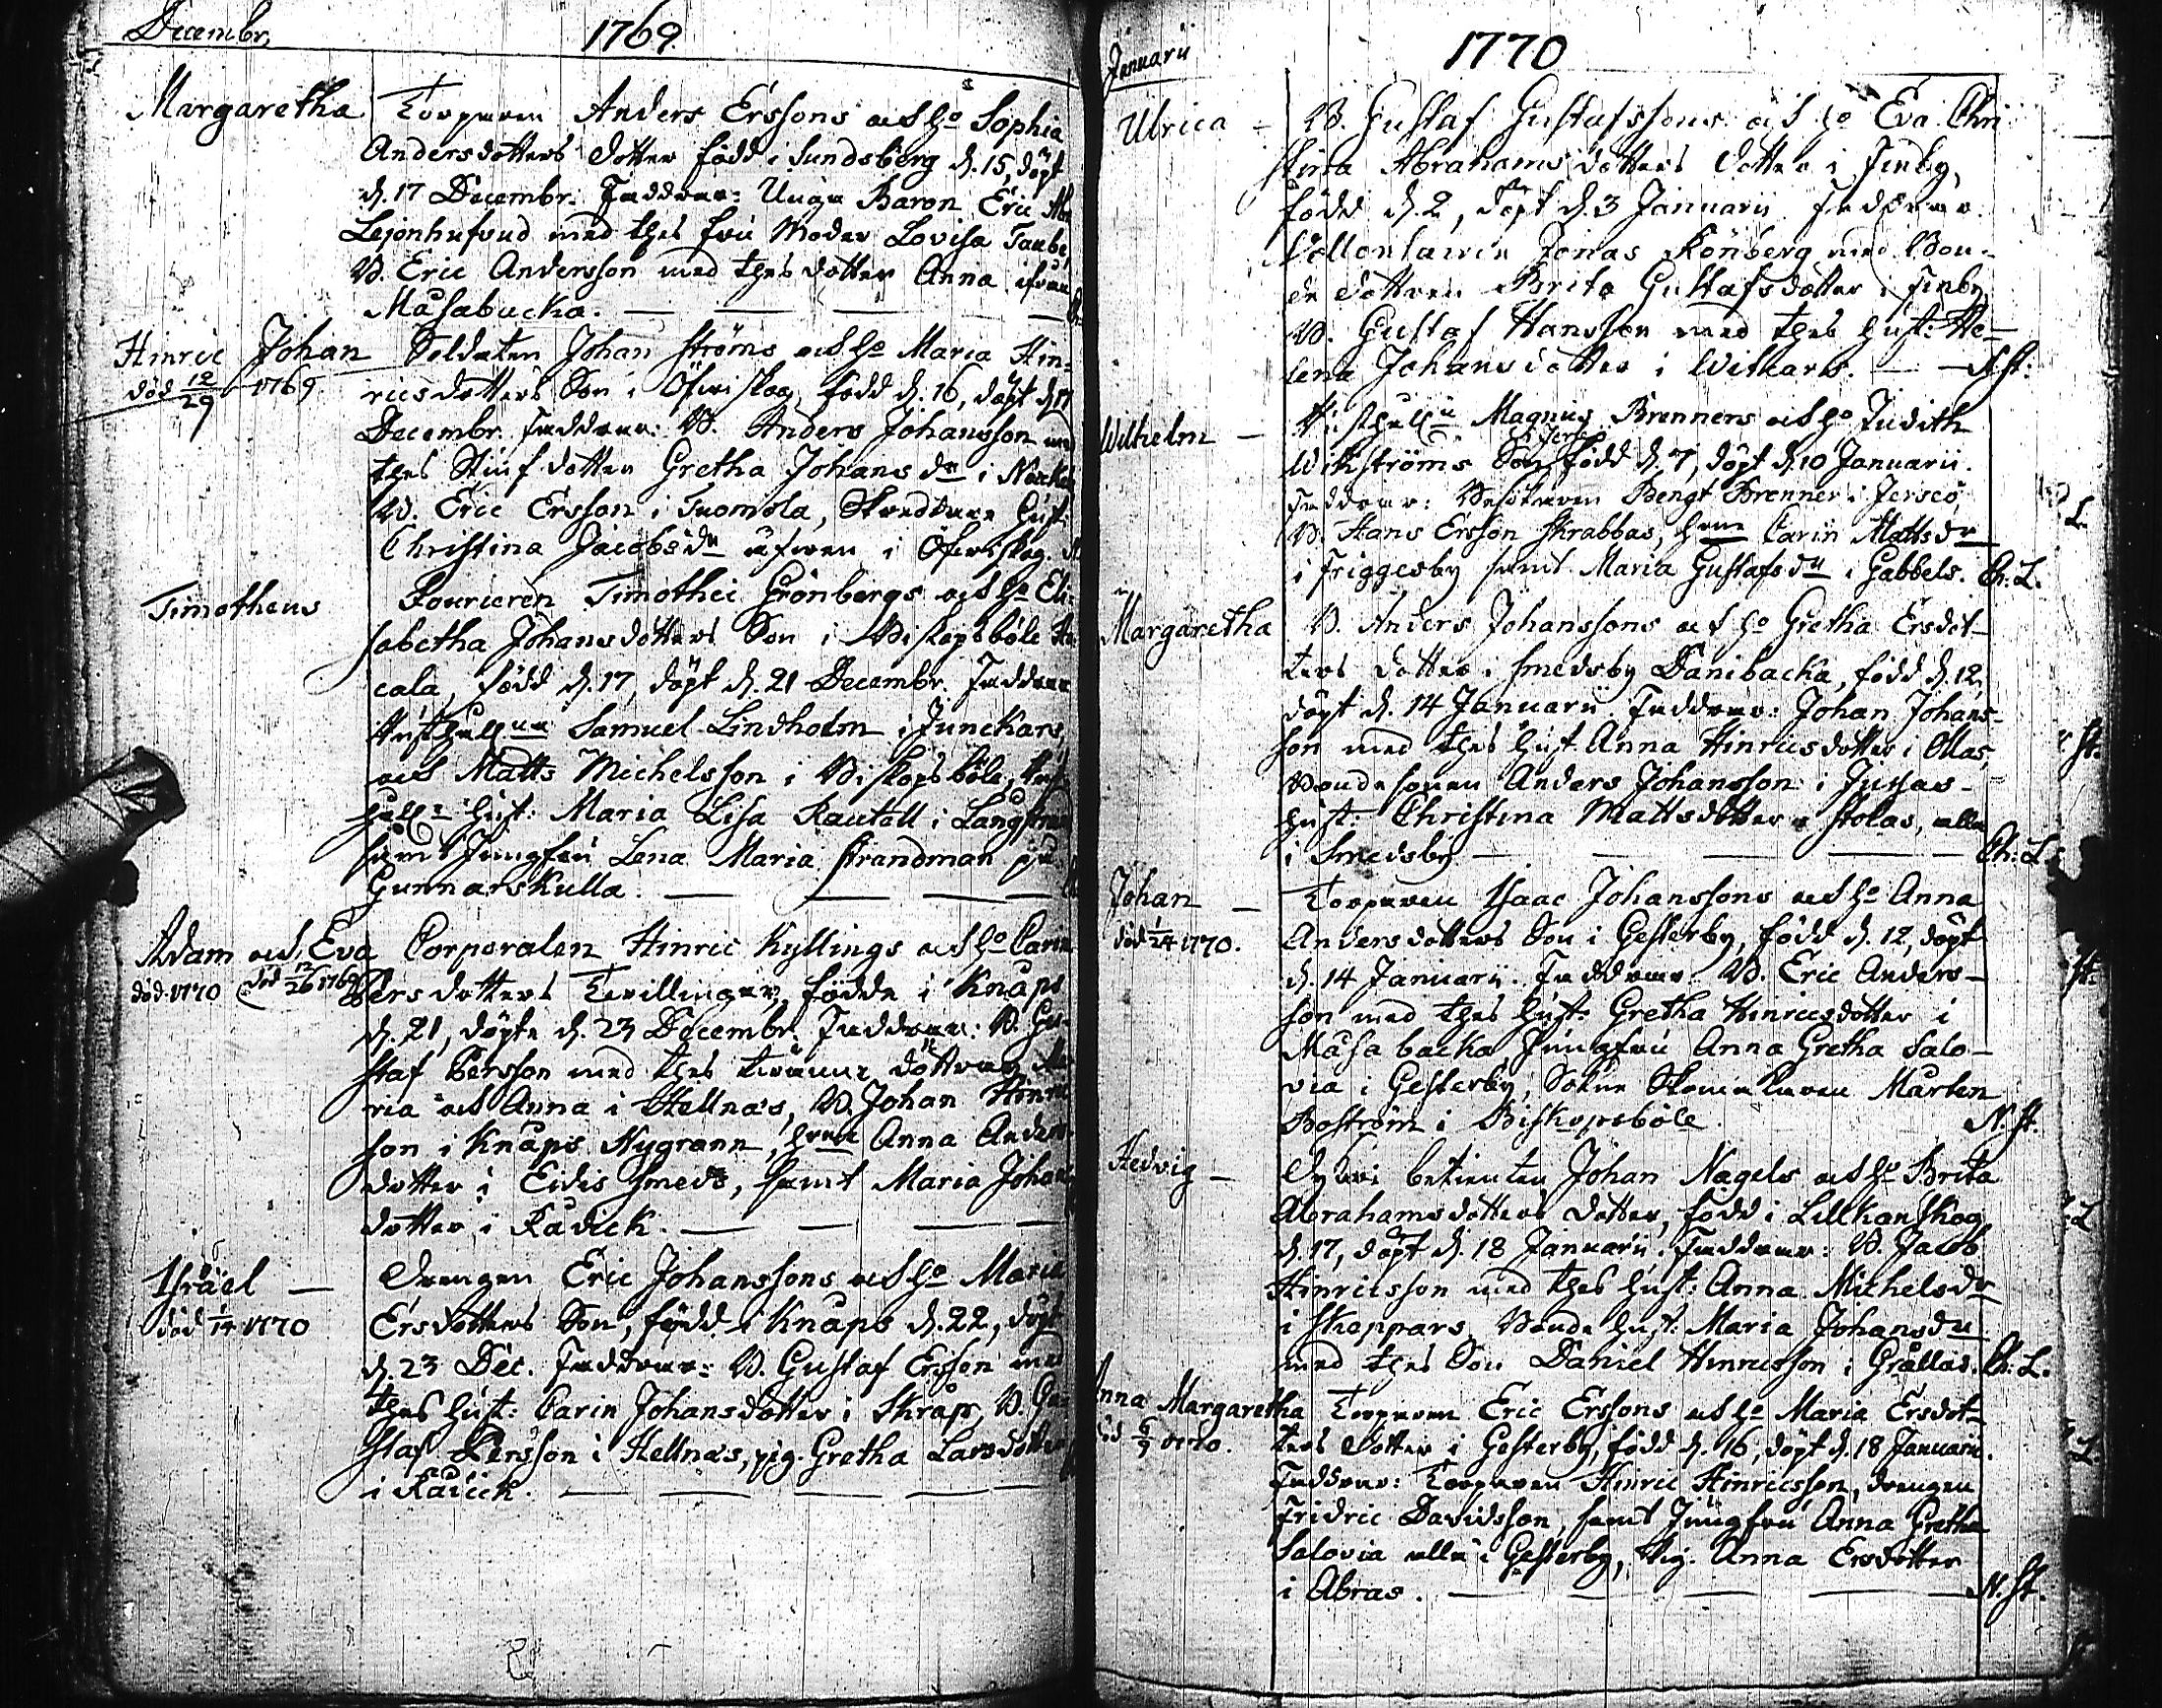 Decembr. 1769.
Margaretha Torparen Anders Erssons och ho Sophia
Andersdotters dotter född i Sundsberg d. 15, döpt
d. 17 Decembr. Faddrar: Unga Baron Eric
Lejonhufvud med thes fru Moder Lovisa Taube,
B. Eric Andersson med thes dotter Anna ifrån
Måsabacka.
Hinric Johan Soldaten Johan Ströms och ho Maria Hin-
död 12/29 1769. ricsdotters Son i Öfwiskog, född d. 16, döpt d. 17
Decembr. Faddrar: B. Anders Johansson med
thes Stiufdotter Gretha Johans dr i
B. Eric Ersson i Tuomola, hust:
Christina Jacobsdr i Öfwiskog.
Timotheus Fourieren Timothei Grönbergs och ho Eli-
sabetha Johansdotters Son i Biskopsböle
cala, född d. 17, döpt d. 21 Decembr. Faddrar
Samuel Lindholm i Junckars,
och Matts Michelsson i Biskopsböle,
hust: Maria Lisa Rautell i
samt Jungfru Lena Maria Strandman på
Gunnarskulla.
Adam och Eva Corporalen Hinric Kyllings och ho Carin
död 1770 död 12/26 1769 Persdotters Tvillingar, födde i Knaps
d. 21, döpte d. 23 Decembr. Faddrar: B. Gu-
staf Persson med thes tvänne döttrar Ma-
ria och Anna i Hellnäs, B. Johan Hinrics-
son i Knaps Nygrann, Anna Anders-
dotter i Eidis Smeds, samt Maria Johans
dotter i Radick.
Israël Drengen Eric Johanssons och ho Maria
död 1/14 1770 Ersdotters Son, född i Knaps d. 22, döpt
d. 23 Dec. Faddrar: B. Gustaf Ersson med
thes hust: Carin Johansdotter i Skräps, B. Gu-
staf Persson i Hellnäs, pig. Gretha Larsdotter
i Radick.
Januarii 1770
Ulrica B. Gustaf Gustafssons och ho Eva Chri
stina Abrahams dotters dotter i Finby,
född d. 2, döpt d. 3 Januarii. Faddrar
Jonas Rönberg med Bon-
de dottren Brita Gustafsdotter i Finby
B. Gustaf Hansson med thes hust: He-
lena Johansdotter i Wilkars. N. St:
Wilhelm Magnus Brenners och ho Judith
Wikströms Son, född d. 7, döpt d. 10 Januarii.
Faddrar: Bengt Brenner i Jerseö,
B. Hans Ersson Skrabbas, Carin Mattsdr
i Friggesby samt Maria Gustafsdr i Gabbels. Ch: L.
Margaretha B. Anders Johanssons och ho Gretha Ersdot-
ters dotter i Smedsby Danibacka, född d. 12,
döpt d. 14 Januarii Faddrar: Johan Johans-
son med thes hust Anna Hinricsdotter i Ollas,
Bondesonen Anders Johansson i Jussas
hust: Christina Mattsdotter Stolas, alla
i Smedsby Ch: L.
Johan Torparen Isaac Johanssons och ho Anna
död 1/24 1770. Andersdotters Son i Gesterby, född d. 12, döpt
d. 14 Januarii. Faddrar B. Eric Anders-
son med thes hust: Gretha Hinricsdotter i
Måsabacka, Jungfru Anna Gretha Salo-
via i Gesterby, Sokne Skomakaren Mårten
Boström i Biskopsböle. N. St.
Hedvig betienten Johan Nagels och ho Brita
Abrahamsdotters dotter, född i Lillkanskog
d. 17, döpt d. 18 Januarii. Faddrar: B. Jacob
Hinricsson med thes hust: Anna Michelsdr
i Skeppars, Bonde hust: Maria Johansdr
med thes Son Daniel Hinricsson i Grällas. Ch: L.
Anna Margaretha Torparen Eric Erssons och ho Maria Ersdot-
död 6/9 1770. ters dotter i Gesterby, född d. 16, döpt d. 18 Januarii.
Faddrar: Torparen Hinric Hinricsson, drengen
Fridric Davidsson, samt Jungfru Anna Gretha
Salovia alla i Gesterby, Pig. Anna Ersdotter
i Abras. N. St.